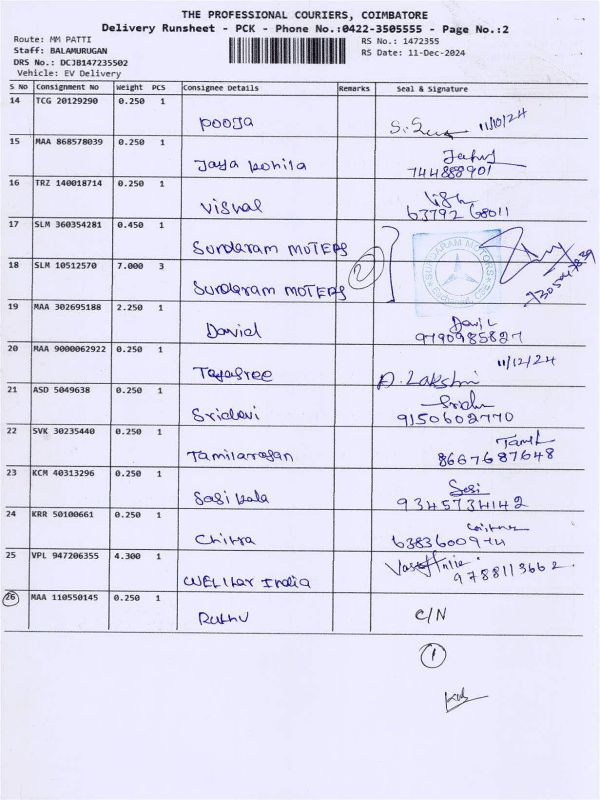 THE PROFESSIONAL COURIERS, COIMBATORE
Delivery Runsheet - PCK - Phone No.:0422-3505555 - Page No.:2
Route: MM PATTI
RS No.: 1472355
Staff: BALAMURUGAN
RS Date: 11-Dec-2024
DRS No.: DCJB147235502
Vehicle: EV Delivery
S No Consignment No Weight PCS Consignee Details Remarks Seal & Signature
14 TCG 20129290 0.250 1 Pooja 11/10/24
15 MAA 868578039 0.250 1 Jaya Kohila 744888901
16 TRZ 140018714 0.250 1 Vishal 63792 68011
17 SLM 360354281 0.450 1 Sundaram MOTERS
18 SLM 10512570 7.000 3 Sundaram MOTERS 2 SUNDARAM MOTORS
19 MAA 302695188 2.250 1 David 9790985827
20 MAA 9000062922 0.250 1 11/12/24 A. Lakshmi
21 ASD 5049638 0.250 1 Sridevi 9150602770
22 SVK 30235440 0.250 1 Tamilarasan Tamil 8667687648
23 KCM 40313296 0.250 1 Sasi kala Sasi 9345734142
24 KRR 50100661 0.250 1 Chitra 6383600974
25 VPL 947206355 4.300 1 India 9788113662
26 MAA 110550145 0.250 1 Ruthu C/N
1